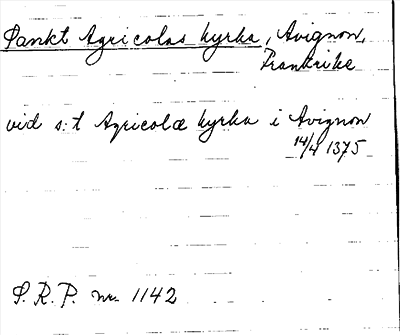 Sankt Agricolas kyrka, Avignon,
Frankrike
vid s:t Agricolæ kyrka i Avignon
14/4 1375
S.R.P. nr. 1142